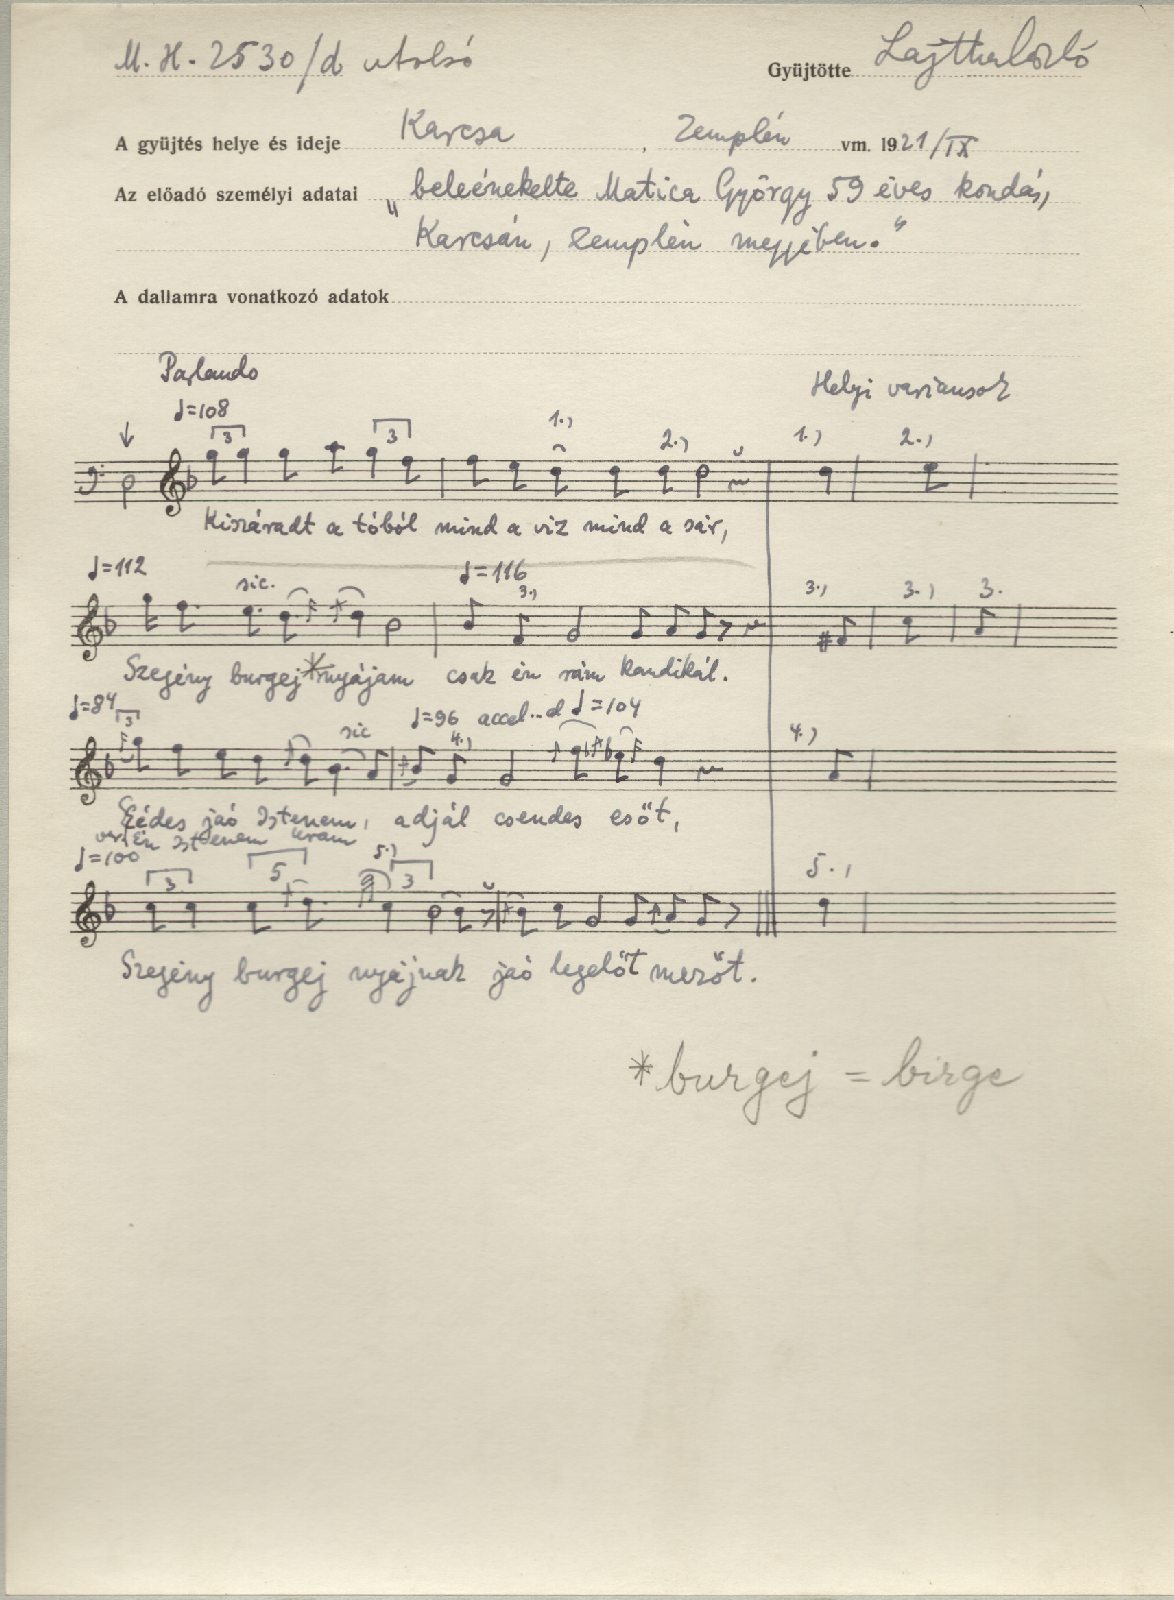 M. H. 2530/d utolsó
Gyüjtötte Lajtha László
A gyüjtés helye és ideje Karcsa, Zemplén vm. 1921/IX
Az előadó személyi adatai „beleénekelte Matica György 59 éves kondás,
Karcsán, Zemplén megyében."
A dallamra vonatkozó adatok
Parlando
Helyi variansok
♩=108
3 3 1.) 2.) 1.) 2.)
Kiszáradt a tóból mind a viz mind a sár,
♩=112 sic. ♩=116 3.) 3.) 3.) 3.
Szegény burgej* nyájam csak én rám kandikál.
♩=84 3 sic ♩=96 accel...al ♩=104
4.) 4.)
Éédes jaó Istenem, adjál csendes esőt,
var. Én Istenem Uram
♩=100 3 5 5.) 3 5.)
Szegény burgej nyájnak jaó legelőt mezőt.
*burgej = birge